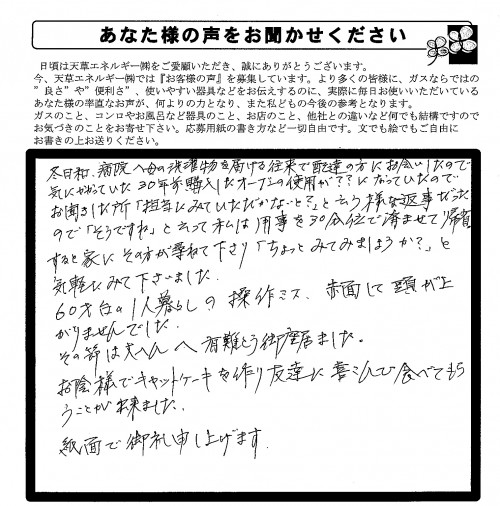 あなた様の声をお聞かせください
日頃は天草エネルギー㈱をご愛顧いただき、誠にありがとうございます。
今、天草エネルギー㈱では『お客様の声』を募集しています。より多くの皆様に、ガスならではの
”良さ”や”便利さ”、使いやすい器具などをお伝えするのに、実際に毎日お使いいただいている
あなた様の率直なお声が、何よりの力となり、また私どもの今後の参考となります。
ガスのこと、コンロやお風呂など器具のこと、お店のこと、他社との違いなど何でも結構ですので
お気づきのことをお寄せ下さい。応募用紙の書き方など一切自由です。文でも絵でもご自由に
お書きの上お送りください。
冬日和、病院へ母の洗濯物を届ける往来で配達の方にお会いしたので
気にかかっていた30年前購入したオーブンの使用が??になっていたので
お聞きした所「担当にみていただかないと?」と云う様な返事だった
ので「そうですね」と云って私は用事を30分位で済ませて帰宅
すると家にその方が尋ねて下さり「ちょっとみてみましょうか?」と
気軽にみて下さいました。
60才台の1人暮らしの操作ミス、赤面にて頭が上
がりませんでした。
その節は大へん有難とう御座居ました。
お陰様でキャットケーキを作り友達に喜こんで食べてもら
うことが出来ました。
紙面で御礼申し上げます。